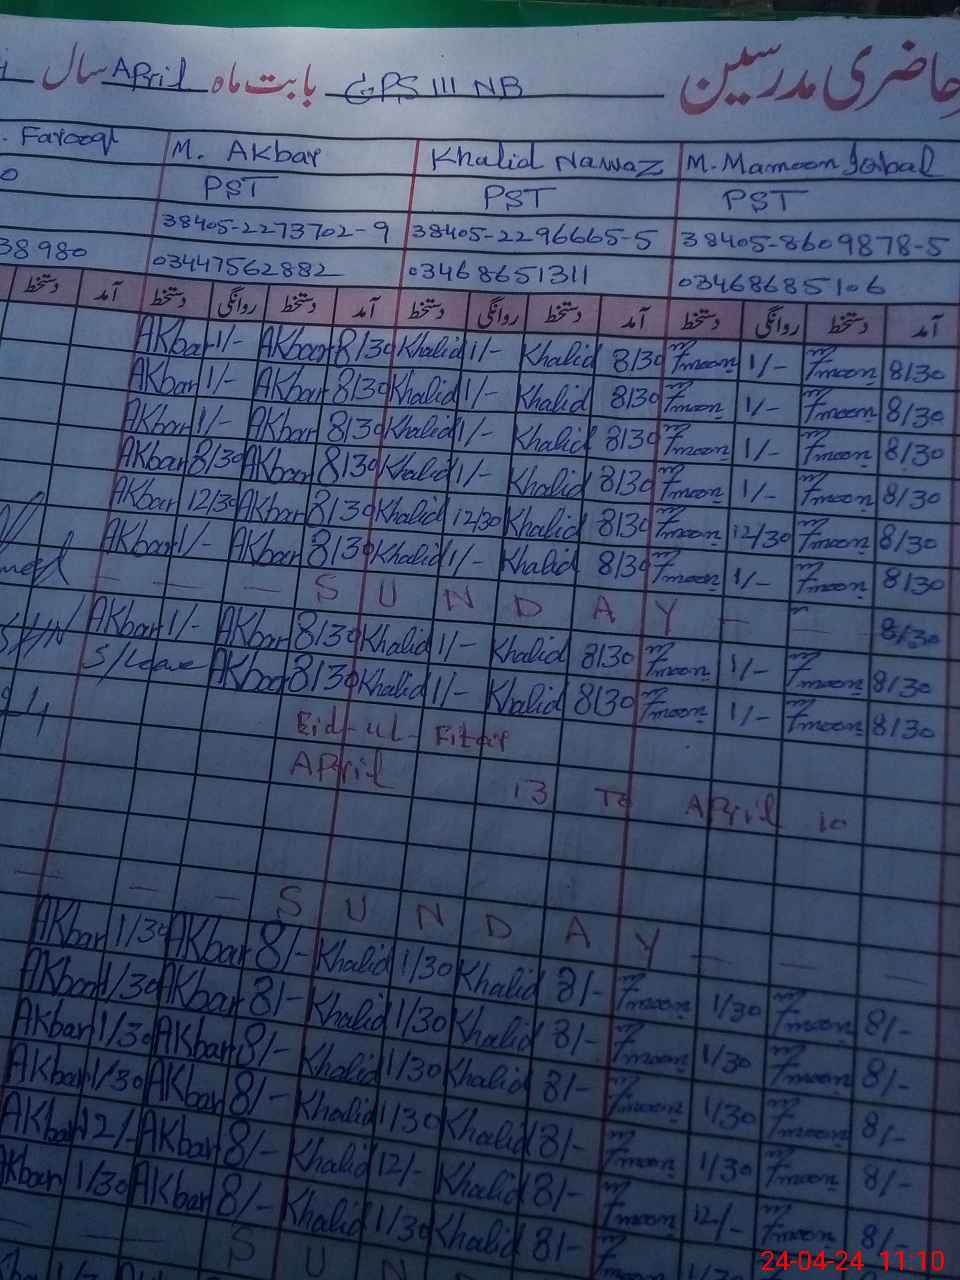 حاضری مدرسین GPS III NB بابت ماہ April سال
M. Mamoon Iqbal Khalid Nawaz M. Akbar Farooq
PST PST PST
38405-8609878-5 38405-2296665-5 38405-2273702-9
03468685106 03468651311 03447562882 38980
آمد دستخط روانگی دستخط آمد دستخط روانگی دستخط آمد دستخط روانگی دستخط آمد دستخط
Akbar 1/- Akbar 8/30 Khalid 1/- Khalid 8/30 moon 1/- moon 8/30
Akbar 1/- Akbar 8/30 Khalid 1/- Khalid 8/30 moon 1/- moon 8/30
Akbar 1/- Akbar 8/30 Khalid 1/- Khalid 8/30 moon 1/- moon 8/30
Akbar 8/30 Akbar 8/30 Khalid 1/- Khalid 8/30 moon 1/- moon 8/30
Akbar 12/30 Akbar 8/30 Khalid 12/30 Khalid 8/30 moon 12/30 moon 8/30
Akbar 1/- Akbar 8/30 Khalid 1/- Khalid 8/30 moon 1/- moon 8/30
— — — S U N D A Y — — 8/30
Akbar 1/- Akbar 8/30 Khalid 1/- Khalid 8/30 moon 1/- moon 8/30
S/Leave Akbar 8/30 Khalid 1/- Khalid 8/30 moon 1/- moon 8/30
Eid-ul-Fitar
April 13 To April 10
— — — S U N D A Y — — —
Akbar 1/30 Akbar 8/- Khalid 1/30 Khalid 8/- moon 1/30 moon 8/-
Akbar 1/30 Akbar 8/- Khalid 1/30 Khalid 8/- moon 1/30 moon 8/-
Akbar 1/30 Akbar 8/- Khalid 1/30 Khalid 8/- moon 1/30 moon 8/-
Akbar 1/30 Akbar 8/- Khalid 1/30 Khalid 8/- moon 1/30 moon 8/-
Akbar 12/- Akbar 8/- Khalid 12/- Khalid 8/- moon 12/- moon 8/-
Akbar 1/30 Akbar 8/- Khalid 1/30 Khalid 8/- 1/30
— — S U N D
24-04-24 11:10